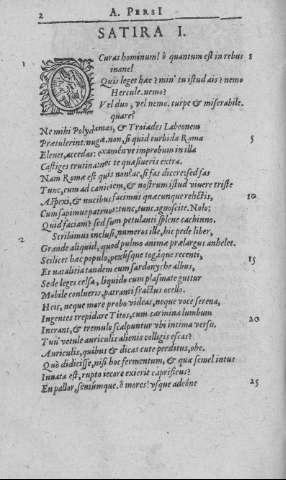 2 A. PERSI
SATIRA I.
O Curas hominum! ô quantum est in rebus 1
inane!
Quis leget hæc? min' tu istud ais? nemo
Hercule. nemo?
Vel duo, vel nemo. turpe & miserabile.
quare?
Ne mihi Polydamas, & Troiades Labeonem
Prætulerint. nugæ. non, si quid turbida Roma 5
Elevet, accedas: examénve improbum in illa
Castiges trutina: nec te quæsiveris extra.
Nam Romæ est quis non? ac, si fas dicere: sed fas
Tunc, cum ad caniciem, & nostrum istud vivere triste
Aspexi, & nucibus facimus quæcunque relictis, 10
Cum sapimus patruos: tunc, tunc ignoscite. Nolo:
Quid faciam? sed sum petulanti splene cachinno.
2 Scribimus inclusi, numeros ille, hic pede liber,
Grande aliquid, quod pulmo animæ prælargus anhelet.
Scilicet hæc populo, pexusque togaque recenti, 15
Et natalitia tandem cum sardonyche albus,
Sede leges celsa, liquido cum plasmate guttur
Mobile conlueris, patranti fractus ocello.
Heic, neque more probo videas, neque voce serena,
Ingentes trepidare Titos, cum carmina lumbum 20
Intrant, & tremulo scalpuntur ubi intima versu.
Tun' vetule auriculis alienis colligis escas?
Auriculis, quibus & dicas cute perditus, ohe.
Quò didicisse, nisi hoc fermentum, & quæ semel intus
Innata est, rupto iecore exierit caprificus? 
En pallor, seniumque. ô mores! usque adeóne 25